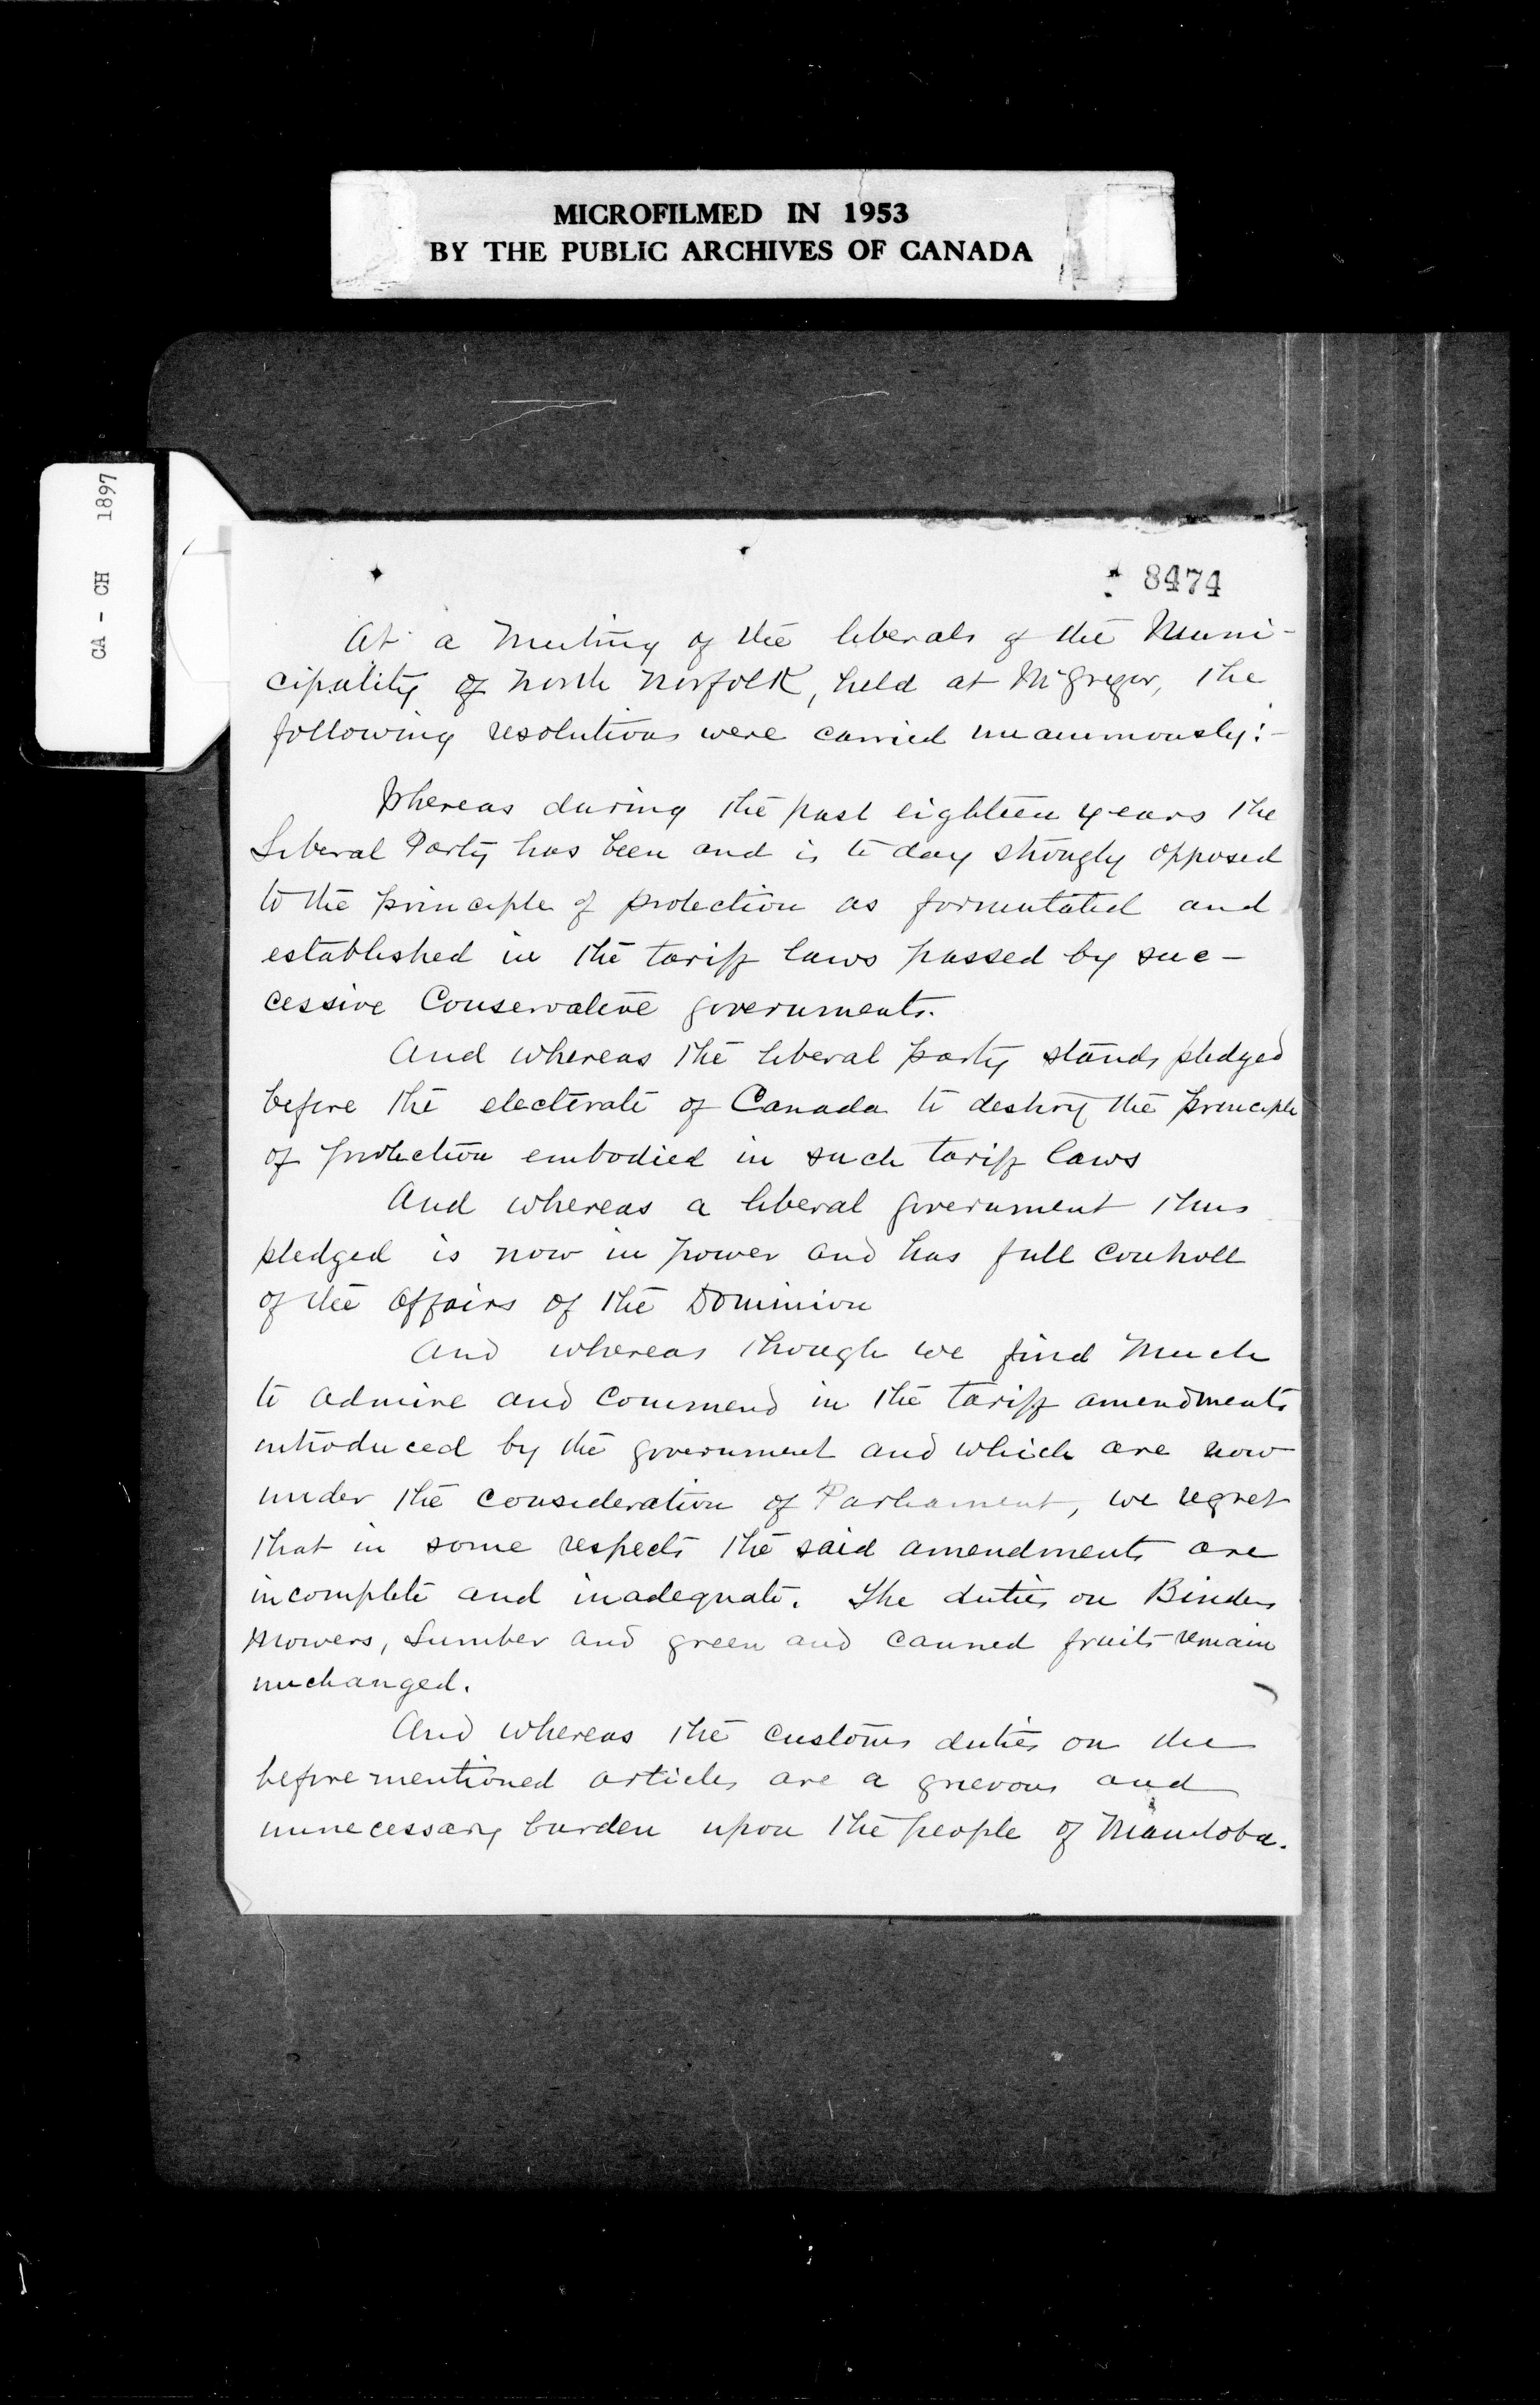 MICROFILMED IN 1953
BY THE PUBLIC ARCHIVES OF CANADA
CA - CH 1897
8474
At a Meeting of the liberals of the Muni-
cipality of North Norfolk, held at McGregor, the
following resolutions were carried unanimously:-
Whereas during the past eighteen years the
Liberal Party has been and is to day strongly opposed
to the principle of protection as formutated and
established in the tariff laws passed by suc-
cessive Conservative governments.
And whereas the liberal party stands pledged
before the electorate of Canada to destroy the principle
of protection embodied in such tariff laws
And whereas a liberal government thus
pledged is now in power and has full controll
of the affairs of the Dominion
And whereas though we find much
to admire and commend in the tariff amendments
introduced by the government and which are now
under the consideration of Parliament, we regret
that in some respects the said amendments are
incomplete and inadequate. The duties on Binders
Mowers, Lumber and green and canned fruits remain
unchanged.
And whereas the customs duties on the
before mentioned articles are a grievous and
unnecessary burden upon the people of Manitoba.